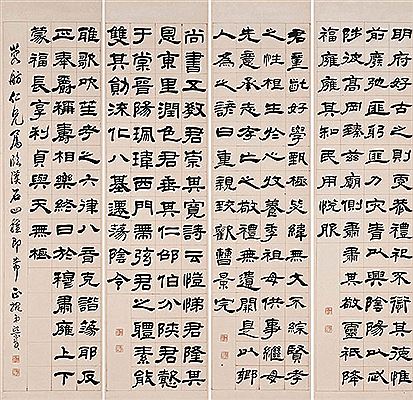 明府好古之則虔恭禮祀不愆其德惟
前廢弛匪躬匪力災眚以興陰陽以忒
陟彼高岡臻茲廟側肅肅其敬靈祇降
福雍雍其和民用悅服
君童齔好學甄極毖緯無文不綜賢孝
之性根生於心收養季祖母供事繼母
先意承志存亡之敬禮無遺闕是以鄉
人為之諺曰重親致歡曹景完
尚書五教君崇其寬詩云愷悌君隆其
恩東里潤色君垂其仁邵伯分陝君懿
于棠晉陽珮瑋西門帶弦君之體素能
雙其勛流化八基遷蕩陰令
雅歌吹笙考之六律八音克諧蕩邪反
正奉爵稱壽相樂終日於穆肅雍上下
蒙福長享利貞與天無極
舫仁兄屬臨漢石四種即希 正